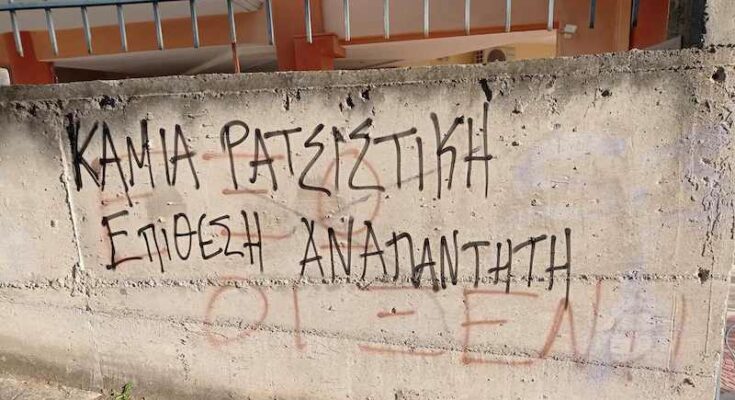 ΚΑΜΙΑ ΡΑΤΣΙΣΤΙΚΗ
ΕΞΩ
ΕΠΙΘΕΣΗ ΑΝΑΠΑΝΤΗΤΗ
ΟΙ ΞΕΝΟΙ